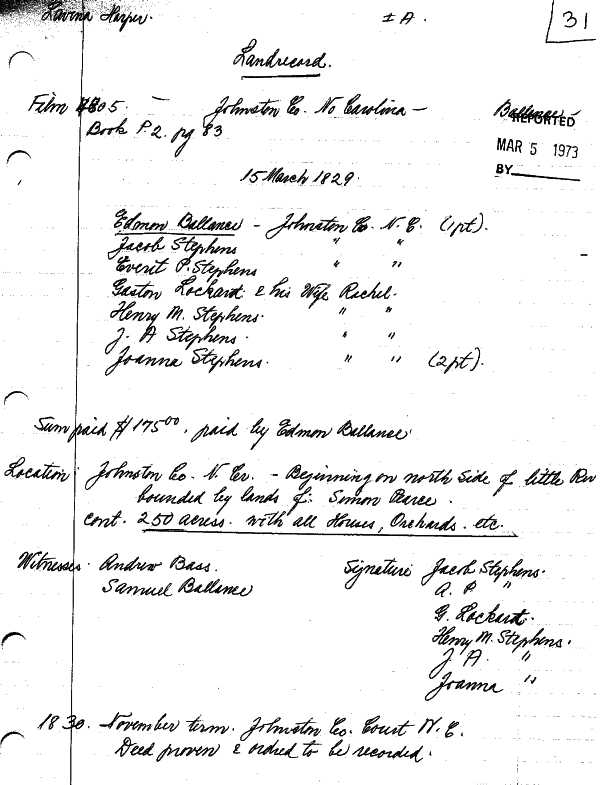 Lavina Harper.
± A.
31
Landrecord.
Film 4805. — Johnston Co. No Carolina —
Ballance
REPORTED
Book P2. pg 83
MAR 5 1973
BY
15 March 1829.
Edmon Ballance - Johnston Co. N.C. (1pt).
Jacob Stephens " "
Everit P. Stephens " "
Gaston Lockard & his Wife Rachel.
Henry M. Stephens. " "
J. A Stephens. " "
Joanna Stephens. " " (2pt).
Sum paid $175.00, paid by Edmon Ballance
Location: Johnston Co. N. Cr. - Beginning on north side of little Riv
bounded by lands of: Simon Pearce.
cont. 250 acres. with all Houses, Orchards. etc.
Witnesses. Andrew Bass. Signature Jacob Stephens.
Samuel Ballance A. P. "
G. Lockard.
Henry M. Stephens.
J. A. "
Joanna "
1830. - November term. Johnston Co. Court N.C.
Deed proven & ordred to be recorded.